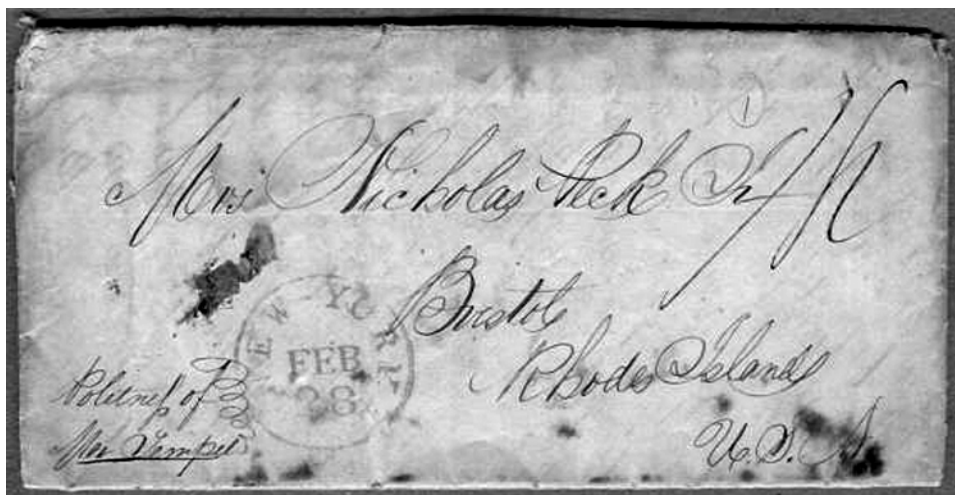 Mrs Nicholas Peck Jr
Bristol
Rhodes Island
U. S. A
NEW-YORK
FEB
28
Politness of